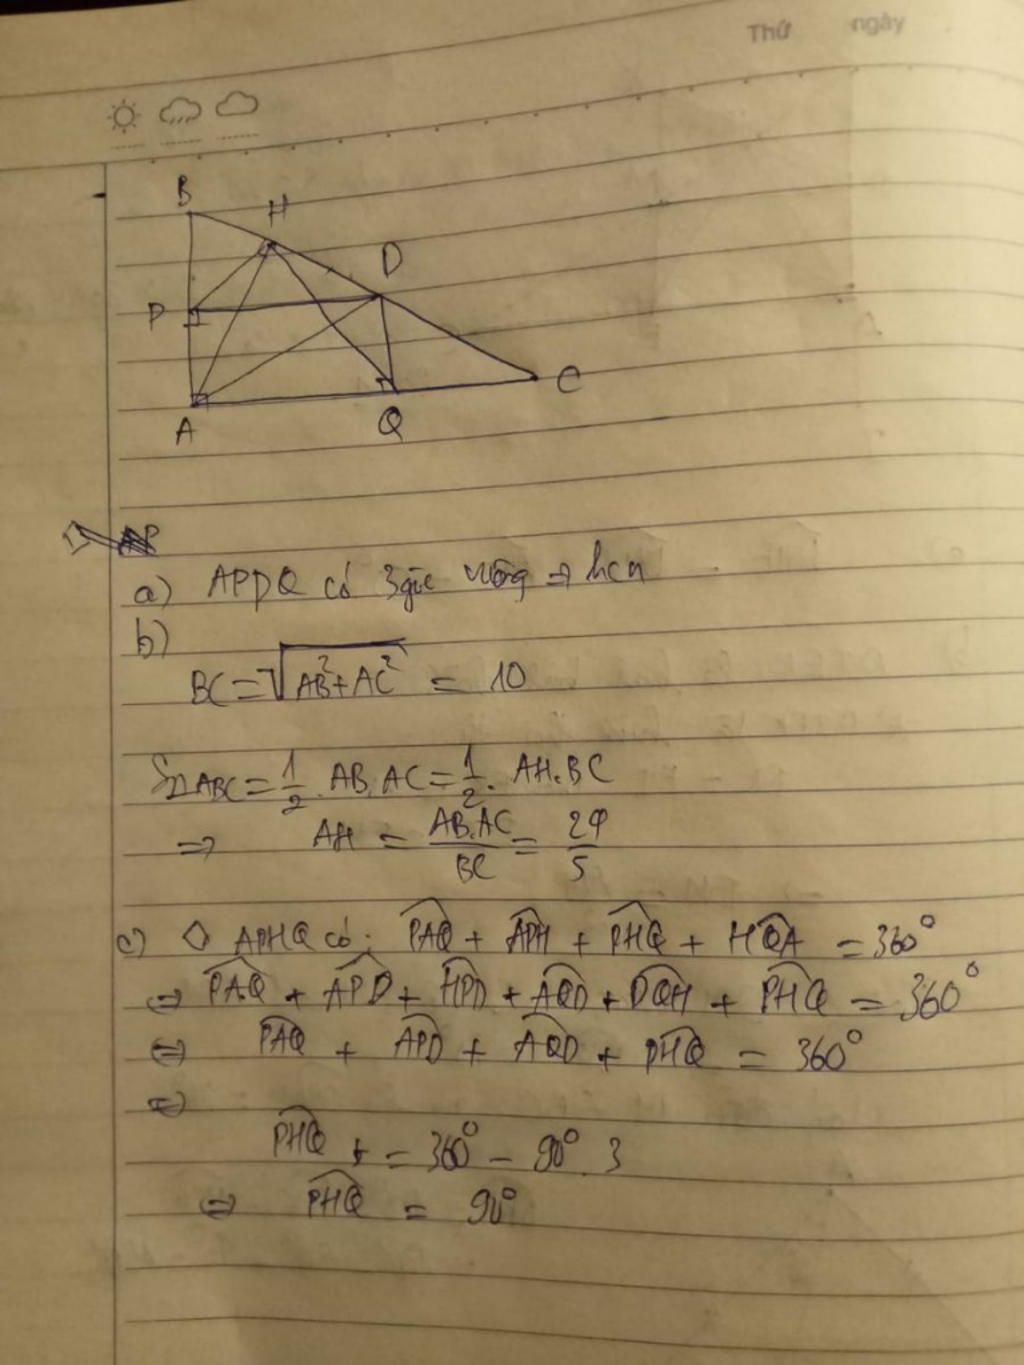 Thứ ngày
B
H
D
P
C
A
Q
a) APDQ có 3 góc vuông ⇒ hcn
b)
BC = √(AB² + AC²) = 10
S△ABC = 1/2 . AB . AC = 1/2 . AH . BC
⇒ AH = AB.AC/BC = 24/5
c) ◇ APHQ có: PAQ^ + APH^ + PHQ^ + HQA^ = 360°
⇔ PAQ^ + APD^ + HPD^ + AQD^ + DQH^ + PHQ^ = 360°
⇔ PAQ^ + APD^ + AQD^ + PHQ^ = 360°
⇔
PHQ^ = 360° - 90° . 3
⇔ PHQ^ = 90°